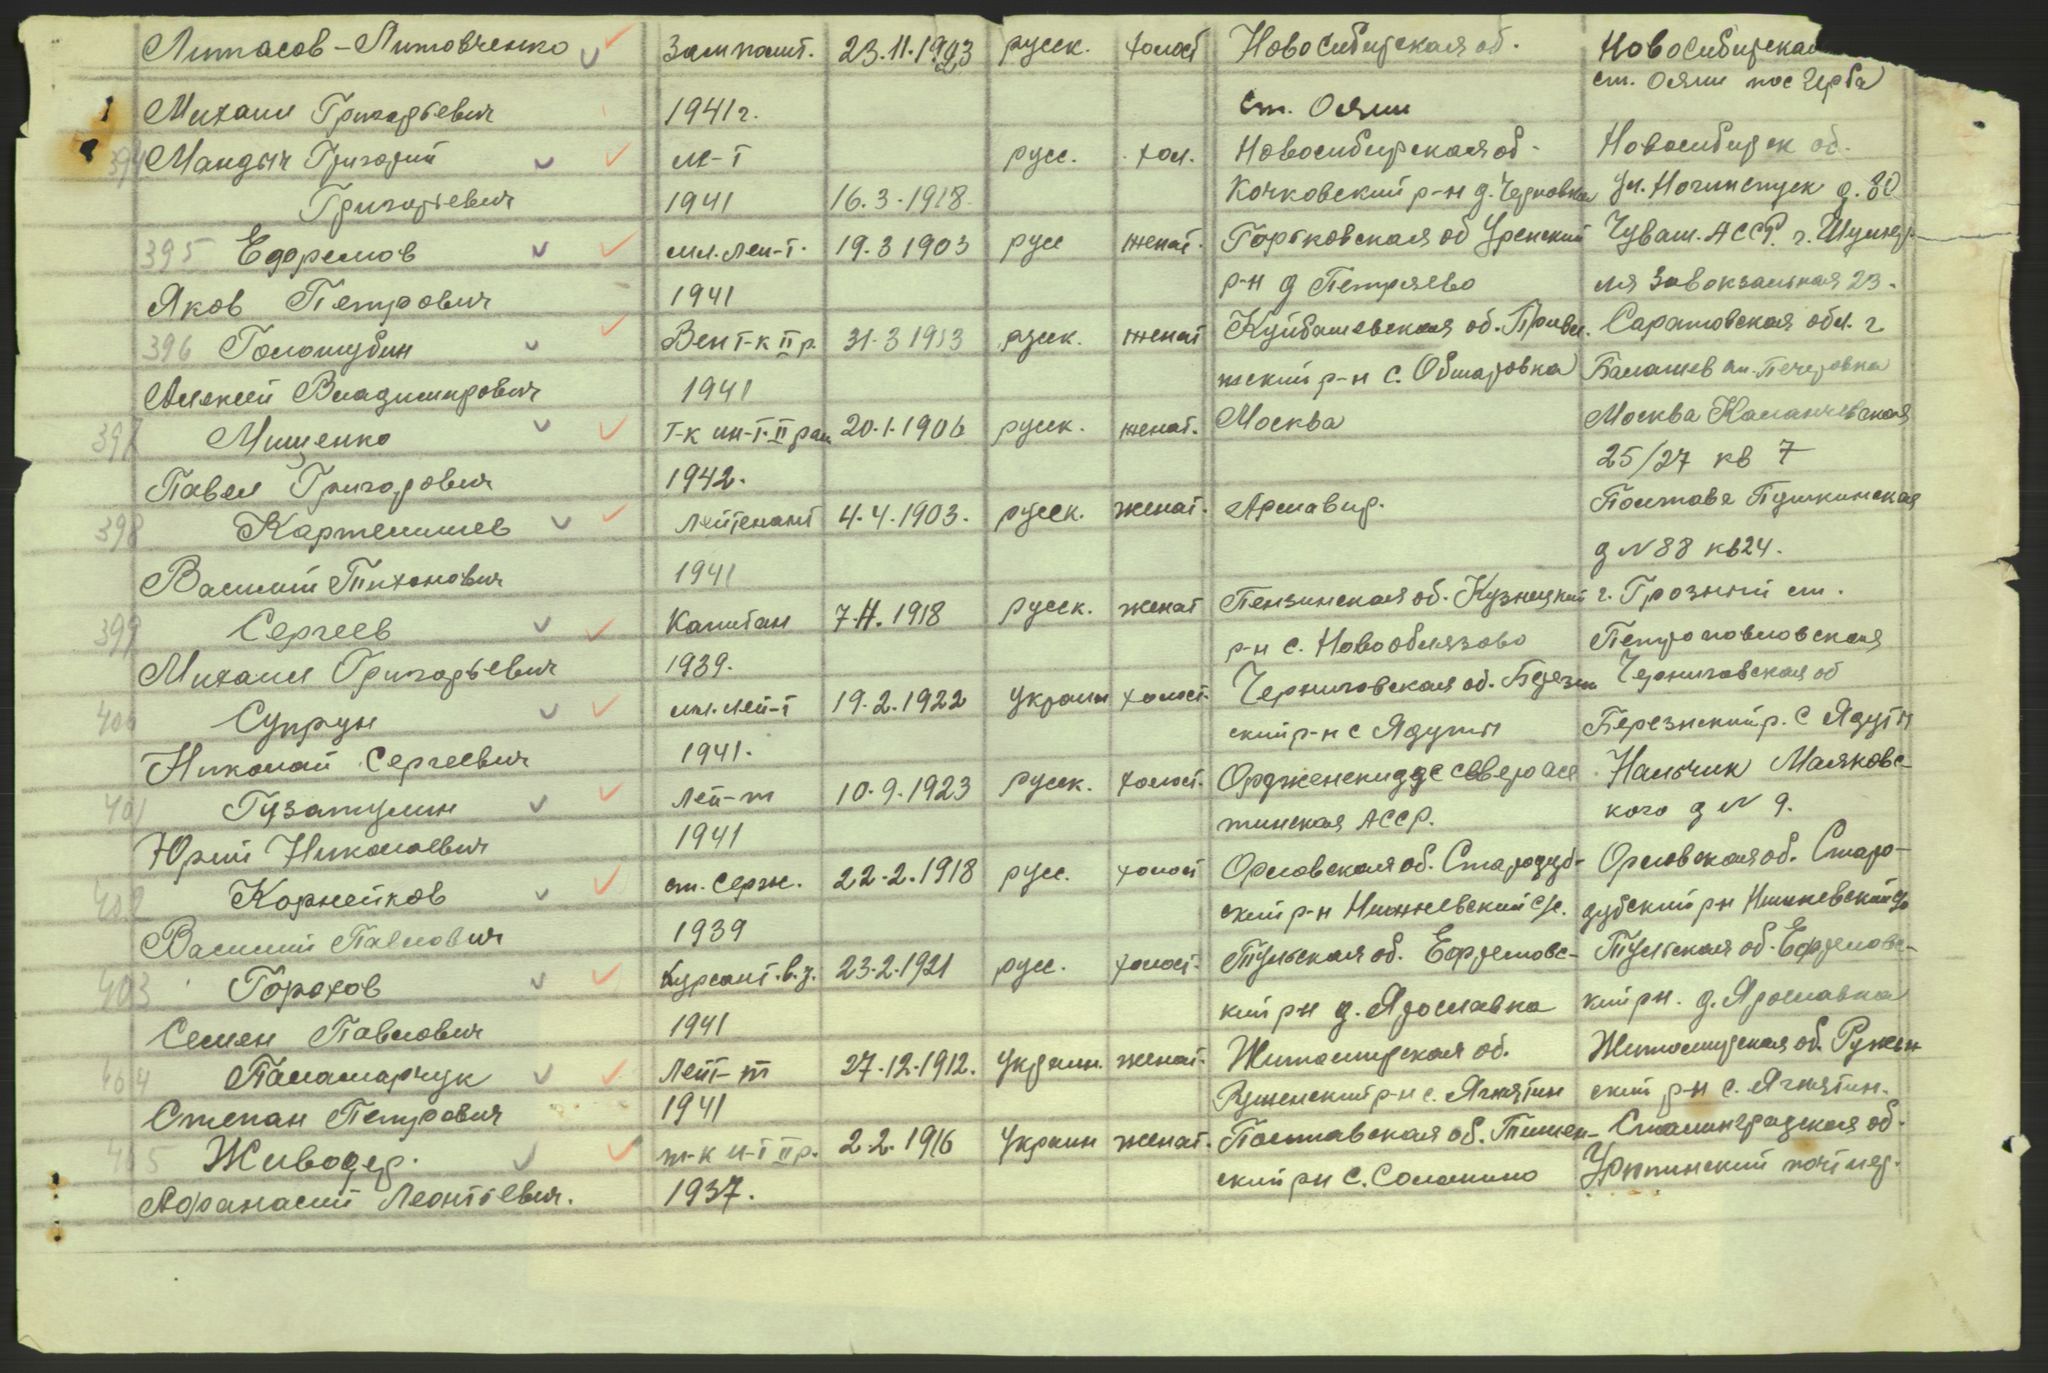 Литасов-Литовченко Замполит. 23.11.1923 русск. холост Новосибирская об. Новосибирская
Михаил Григорьевич 1941г. ст. Ояши ст. Ояши пос Герба
394 Мандыч Григорий м-т русс. хол. Новосибирская об. Новосибирск об.
Григорьевич 1941 16.3.1918. Кочковский р-н д. Черновка ул. д. 30
395 Ефремов мл. лей-т. 19.3 1903 русс женат. Горьковская об Уренский Чуваш. АССР. г. Шумер
Яков Петрович 1941 р-н д Петряево ля Завокзальная 23.
396 Голошубин Воент-к II р. 31.3 1913 русск. женат Куйбышевская об. Приво. Саратовская обл. г
Алексей Владимирович 1941 жский р-н с. Обшаровка Балашев Печеровка
397 Мищенко т-к ин-т. II ран 20.1.1906 русск. женат. Москва Москва Каланчевская
Павел Григорович 1942. 25/27 кв 7
398 Картелишев Лейтенант 4.4.1903. русск. женат. Армавир. Полтава Пушкинская
Василий Тихонович 1941 д N 88 кв 24.
399 Сергеев Капитан 7.11.1918 русск. женат Пензинская об. Кузнецкий г. Грозный ст.
Михаил Григорьевич 1939. р-н с. Новооблязово Петропавловская
400 Супрун мл. лей-т 19.2.1922 Украин холост. Черниговская об. Березн Черниговская об
Николай Сергеевич 1941. ский р-н с Ядуты Березнский р. с Ядуты
401 Гузатулин Лей-т 10.9.1923 русск. холост. Орджекидзе североосе Нальчик Маяковс-
Юрий Николаевич 1941 тинская АССР. кого д N 9.
402 Корнейков ст. серж. 22.2.1918 русс. холост Орловская об. Стародуб- Орловская об. Старо-
Василий Павлович 1939 ский р-н с/с. дубский рн
403 Горохов Курсант. в.у. 23.2.1921 русс. холост. Тульская об. Ефремовс- Тульская об. Ефремовс-
Семен Павлович 1941 кий р-н д. Ярославка кий рн. д. Ярославка
404 Паламарчук Лейт-т 27.12.1912. Украин. женат. Житомирская об. Житомирская об. Ружен
Степан Петрович 1941 Руженский р-н с. Ягнятин ский р-н с. Ягнятин.
405 Живодер. т-к и-т II р. 2.2.1916 Украин женат. Полтавская об. Тишен- Сталинградская об.
Афанасий Леонтьевич. 1937. ский рн с. Солонино Урюпинский